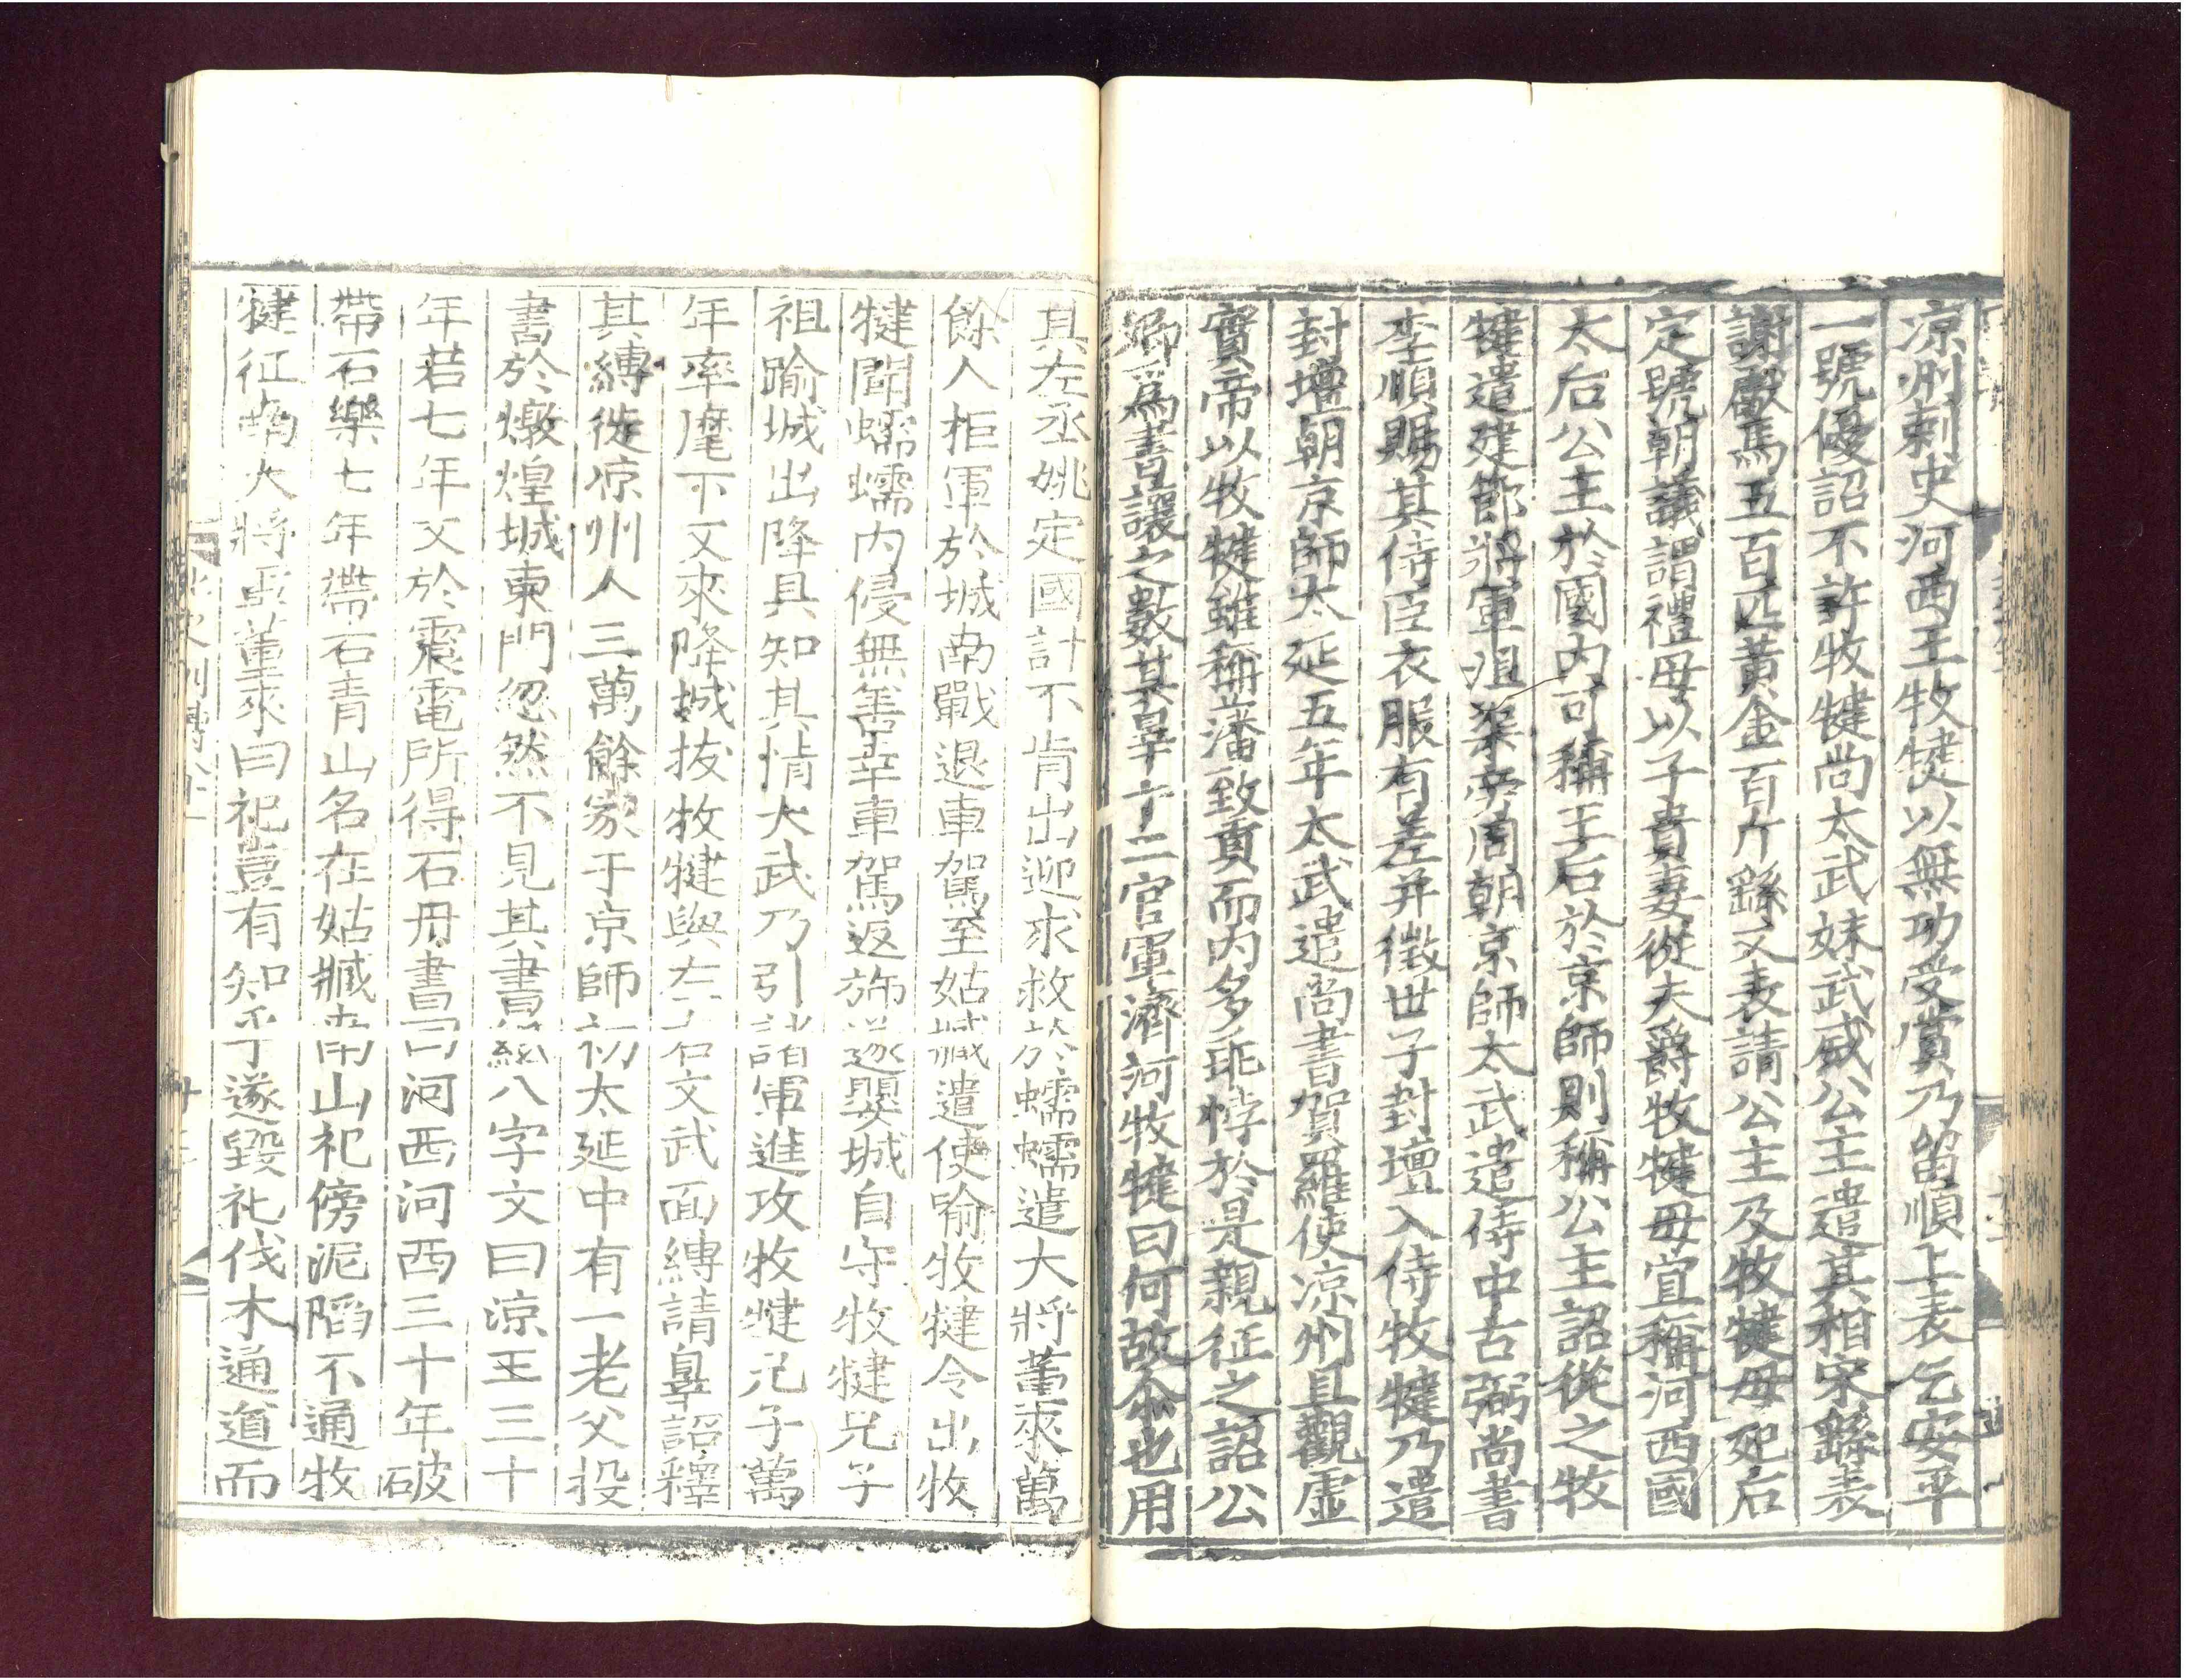 涼州刺史河西王牧犍以無功受賞乃留順上表乞安平
一號優詔不許牧犍尚太武妹武威公主遣其相宋繇表
謝獻馬五百匹黃金百斤繇又表請公主及牧犍母妃后
定號朝議謂禮母以子貴妻從夫爵牧犍母宜稱河西國
太后公主於國內可稱王后於京師則稱公主詔從之牧
犍遣建節將軍沮渠旁周朝京師太武遣侍中古弼尚書
李順賜其侍臣衣服有差并徵世子封壇入侍牧犍乃遣
封壇朝京師太延五年太武遣尚書賀羅使涼州且觀虛
實帝以牧犍雖稱藩致貢而內多乖悖於是親征之詔公
卿為書讓之數其辠十二官軍濟河牧犍曰何故尒也用
其左丞姚定國計不肯出迎求救於蠕蠕遣大將董來萬
餘人拒軍於城南戰退車駕至姑臧遣使喻牧犍令出牧
犍聞蠕蠕內侵無善幸車駕返旆遂嬰城自守牧犍兄子
祖踰城出降具知其情太武乃引諸軍進攻牧犍兄子萬
年率麾下又來降城拔牧犍與左右文武面縛請辠詔釋
其縛徙涼州人三萬餘家于京師初太延中有一老父投
書於燉煌城東門忽然不見其書紙八字文曰涼王三十
年若七年又於震電所得石丹書曰河西河西三十年破
帶石樂七年帶石青山名在姑臧南山祀傍泥陷不通牧
犍征南大將軍董來曰祀豈有知乎遂毀祀伐木通道而
北史列傳八十一